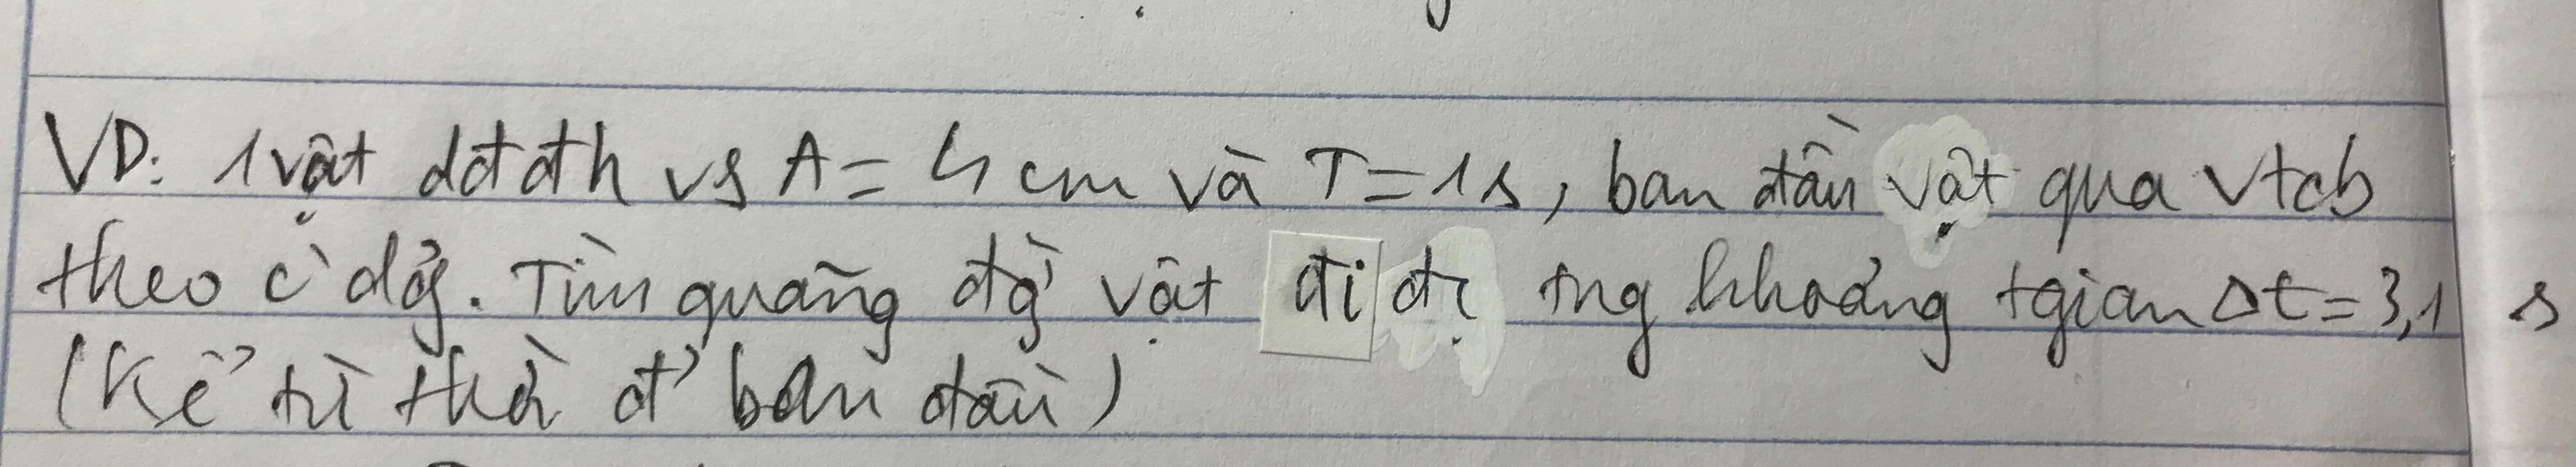 VD: 1 vật dđđh vs A = 4 cm và T = 1s, ban đầu vật qua vtcb
theo c` dg. Tìm quãng đg` vật đi đc tng khoảng tgian Δt = 3,1 s
(Kể từ thời đ' ban đầu)